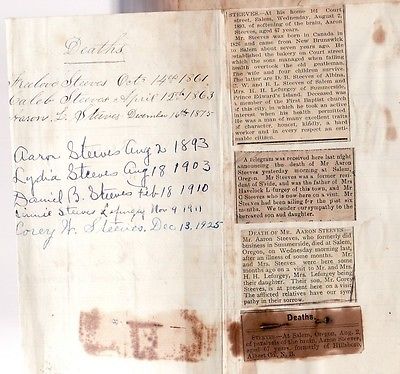 Deaths
Steeves Oct 14th 1861
Caleb Steeves April 12th 1863
Aaron L. Steeves December 16th 1875
Aaron Steeves Aug 2 1893
Lydia Steeves Aug 18 1903
Daniel B. Steeves Feb 18 1910
Annie Steeves Lefurgey Nov 9 1911
Corey W. Steeves, Dec 13, 1925
STEEVES.—At his home 161 Court
street, Salem, Wednesday, August 2,
1893, of paralysis of the brain, Aaron
Steeves, aged 67 years.
Mr. Steeves was born in Canada in
1826 and came from New Brunswick
to Salem about seven years ago. He
established the bakery on Court street
which the sons managed when failing
health overtook the old gentleman.
The wife and four children survive.
The latter are D. B. Steeves of Albina,
C. W. and H. L. Steeves of Salem and
Mrs. H. H. Lefurgey of Summerside,
Prince Edward's Island. Deceased was
a member of the First Baptist church
of this city, in which he took an active
interest when his health permitted.
He was a man of many excellent traits
of character, honor, kindly, a hard
worker and in every respect an esti-
mable citizen.
A telegram was received here last night
announcing the death of Mr. Aaron
Steeves yesterday morning at Salem,
Oregon. Mr. Steeves was a former resi-
dent of S'side, and was the father of Mrs.
H. Lefurgey of this town, and Mr.
C. Steeves who is now here on a visit. Mr.
Steeves had been ailing for the past six
months. We tender our sympathy to the
bereaved son and daughter.
DEATH OF MR. AARON STEEVES.—
Mr. Aaron Steeves, who formerly did
business in Summerside, died at Salem,
Oregon, on Wednesday morning last,
after an illness of some months. Mr.
and Mrs. Steeves were here some
months ago on a visit to Mr. and Mrs.
H. H. Lefurgey, Mrs. Lefurgey being
their daughter. Their son, Mr. Corey
Steeves, is at present here on a visit.
The afflicted relatives have our sym-
pathy in their sorrow.
Deaths.
STEEVES—At Salem, Oregon, Aug. 2,
of paralysis of the brain, Aaron Steeves,
aged 67 years, formerly of Hillsboro,
Albert Co., N. B.